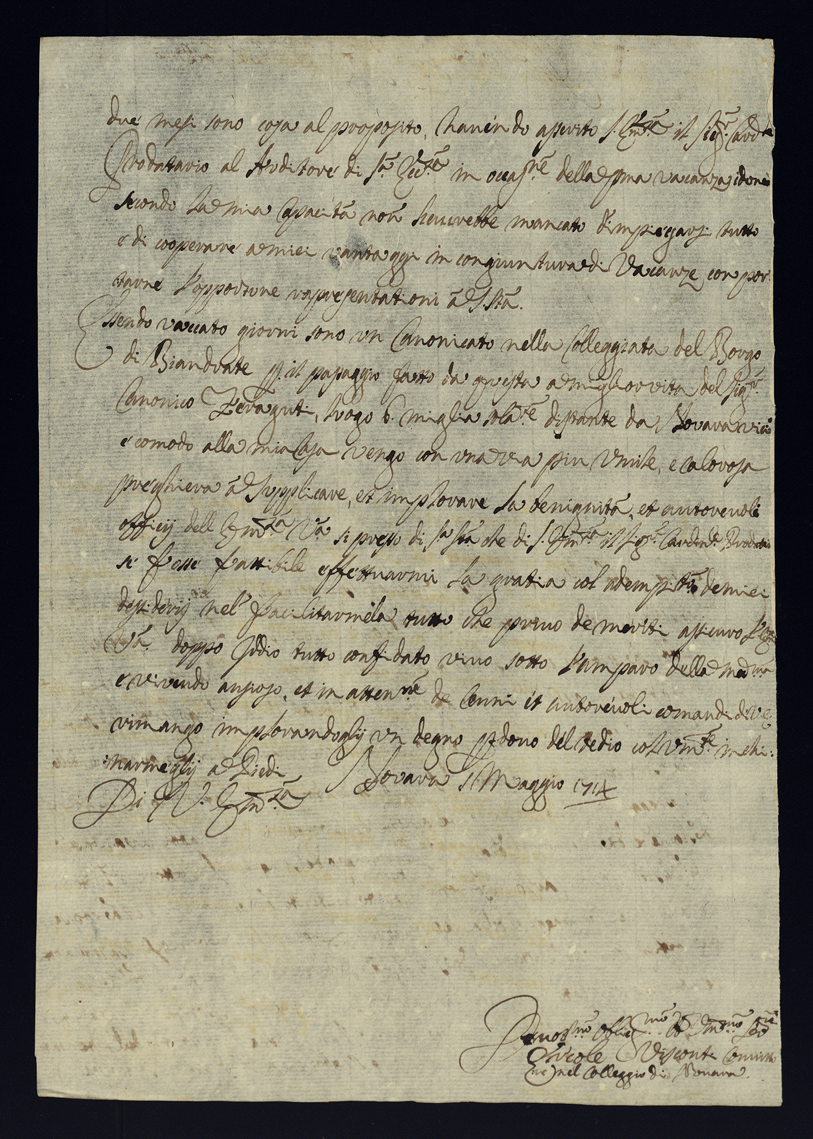 due mesi sono cosa al proposito, havendo asserito S. Em.za il Sig.r Card.le
Prodatario al Auditore di S.a Ecc.za in occas.ne della p.ma vacanza idonea
secondo la mia capacità non haverebbe mancato d'impiegarsi tutto
e di cooperare a miei vantaggi in congiuntura di Vacanze con por-
tarne l'opportune rapresentationi à S. S.tà.
Essendo vaccato giorni sono un Canonicato nella Colleggiata del Borgo
di Biandrate p. il passaggio fatto da questa a miglior vita del Sig.r
Canonico luogo 6 miglia sola.te distante da Novara
e comodo alla mia Casa vengo con una più Umile, e calorosa
preghiera à supplicare, et implorare la benignità, et autorevoli
officij dell Em.za V.a si presso di S.a S.tà che di S. Em.za il Sig.r Card.le Prodatario
se fosse fattibile effettuarmi la gratia col adempim.to de miei
desiderij nel facilitarmela tutto che privo de meriti assicuro l'
V.a doppo Iddio tutto confidato vivo sotto l'amparo della med.ma
e vivendo ansioso, et in atten.ne de Cenni et autorevoli comandi di V.E.
rimango implorandogli un degno p.dono del tedio col inchi-
narmegli a Piedi
Di V. Em.za Novara Maggio 1714
Devot.mo Oblig.mo
Ercole Visconte
nel Colleggio di Novara